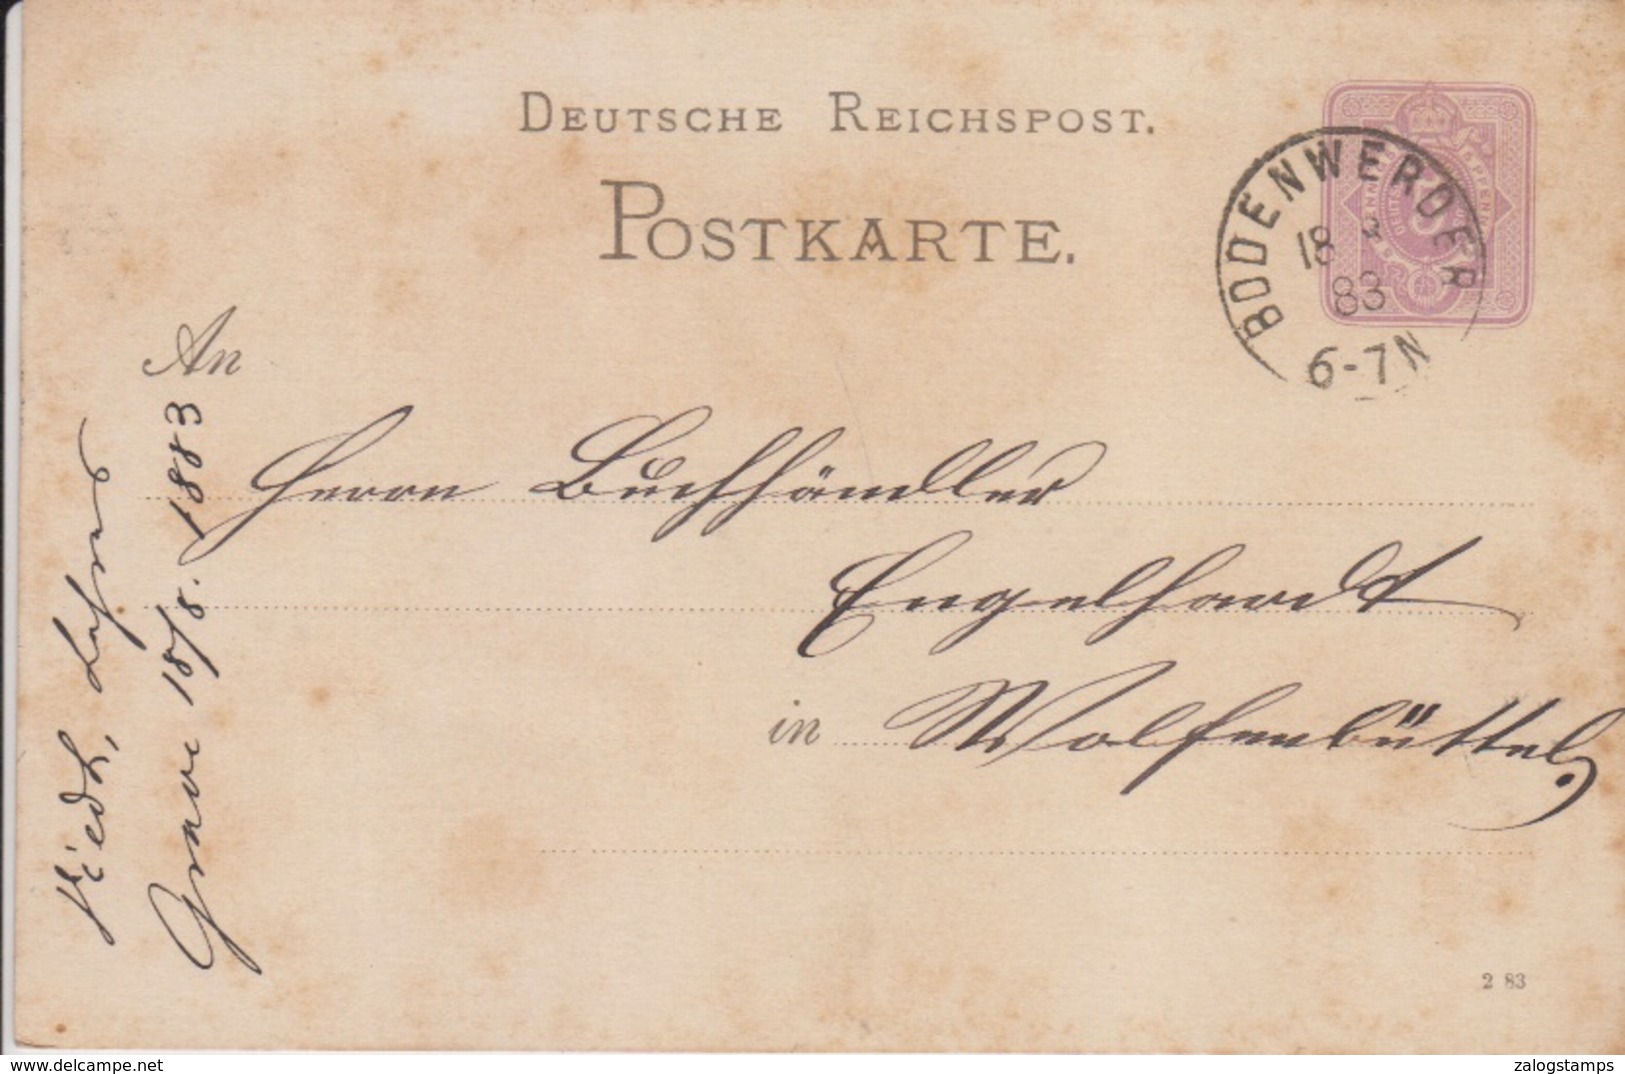 DEUTSCHE REICHSPOST.
POSTKARTE.
BODENWERDER
18 8
83
6-7N
An
Herrn Buchhändler
Engelhardt
in Wolfenbüttel.
Lehrer
Grave 18/8. 1883
2 83
www.delcampe.net
zalogstamps